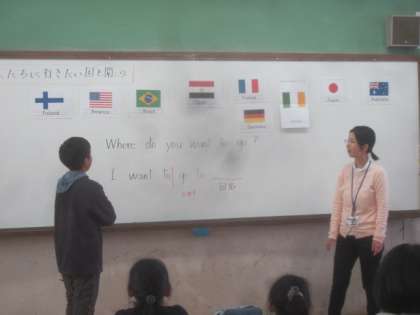 たちに行きたい国を聞こう
Finland
America
Brazil
France
Japan
Australia
Germany
Where do you want to go?
I want to go to
国名